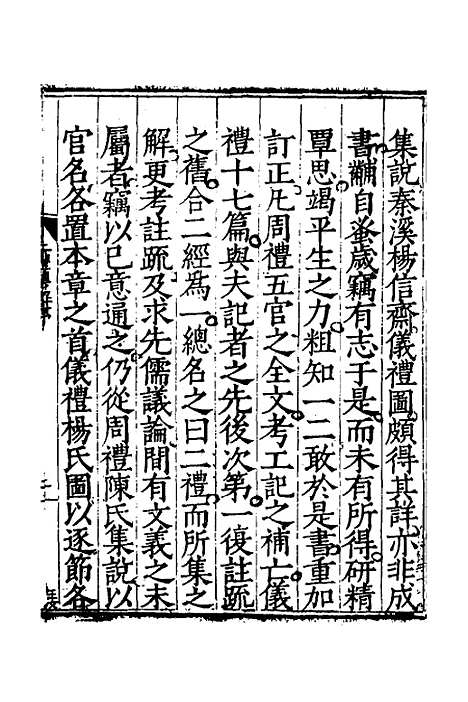 集說秦溪楊信齋儀禮圖頗得其詳亦非成
書黼自蚤歲竊有志于是而未有所得研精
覃思竭平生之力粗知一二敢於是書重加
訂正凡周禮五官之全文考工記之補亡儀
禮十七篇與夫記者之先後次第一復註疏
之舊合二經爲一總名之曰二禮而所集之
解更考註疏及求先儒議論間有文義之未
屬者竊以已意通之仍從周禮陳氏集說以
官名各置本章之首儀禮楊氏圖以逐節各